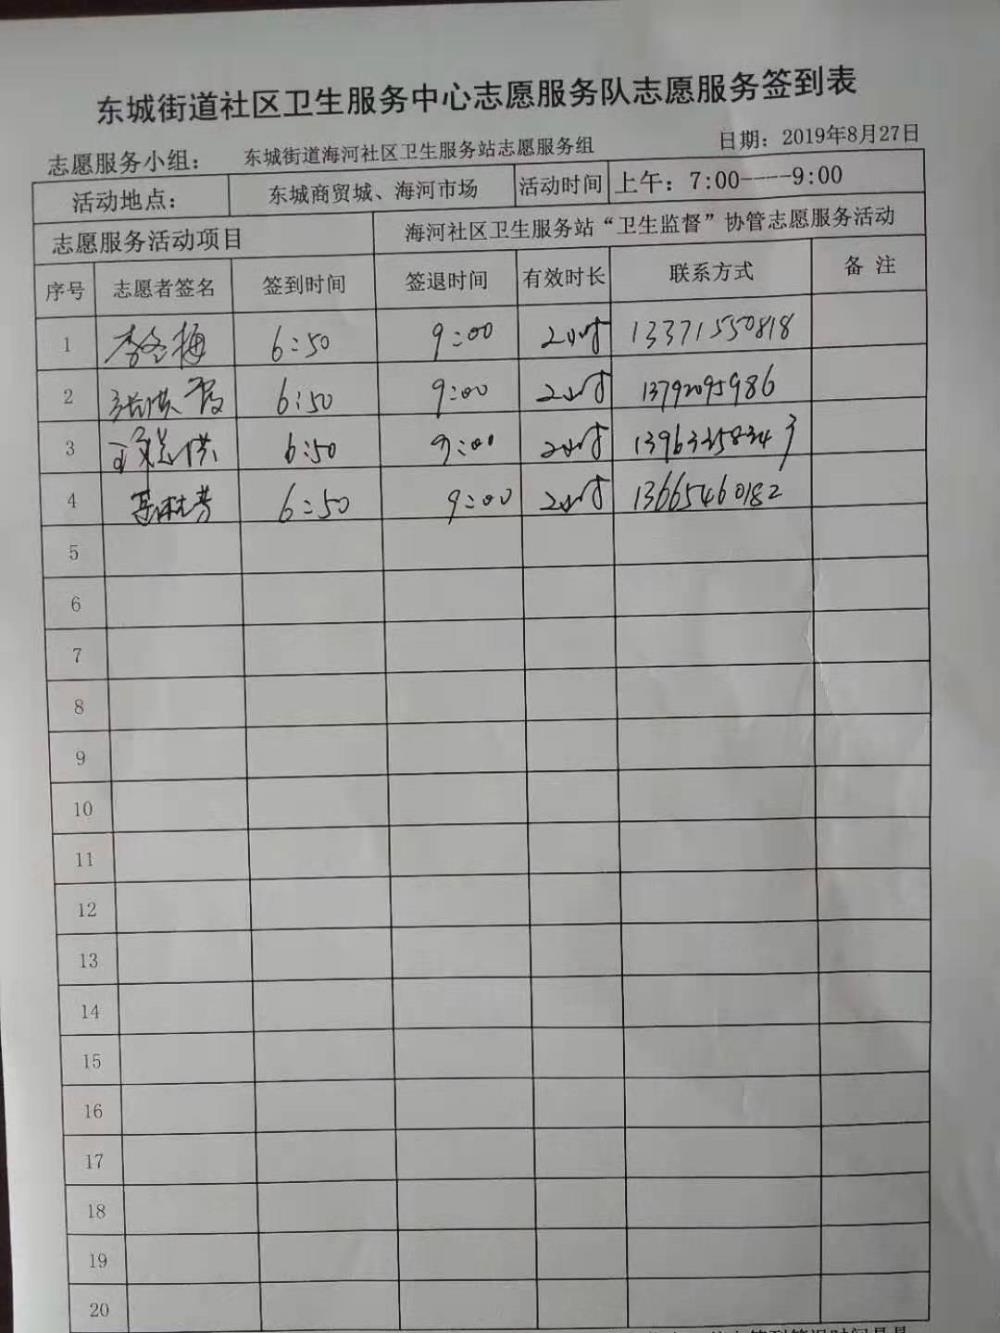 东城街道社区卫生服务中心志愿服务队志愿服务签到表
志愿服务小组： 东城街道海河社区卫生服务站志愿服务组 日期：2019年8月27日
活动地点： 东城商贸城、海河市场 活动时间 上午：7:00----9:00
志愿服务活动项目 海河社区卫生服务站“卫生监督”协管志愿服务活动
序号 志愿者签名 签到时间 签退时间 有效时长 联系方式 备 注
1 李冬梅 6:50 9:00 2小时 13371550818
2 6:50 9:00 2小时 13792095986
3 6:50 9:00 2小时
4 6:50 9:00 2小时 13665460182
5
6
7
8
9
10
11
12
13
14
15
16
17
18
19
20